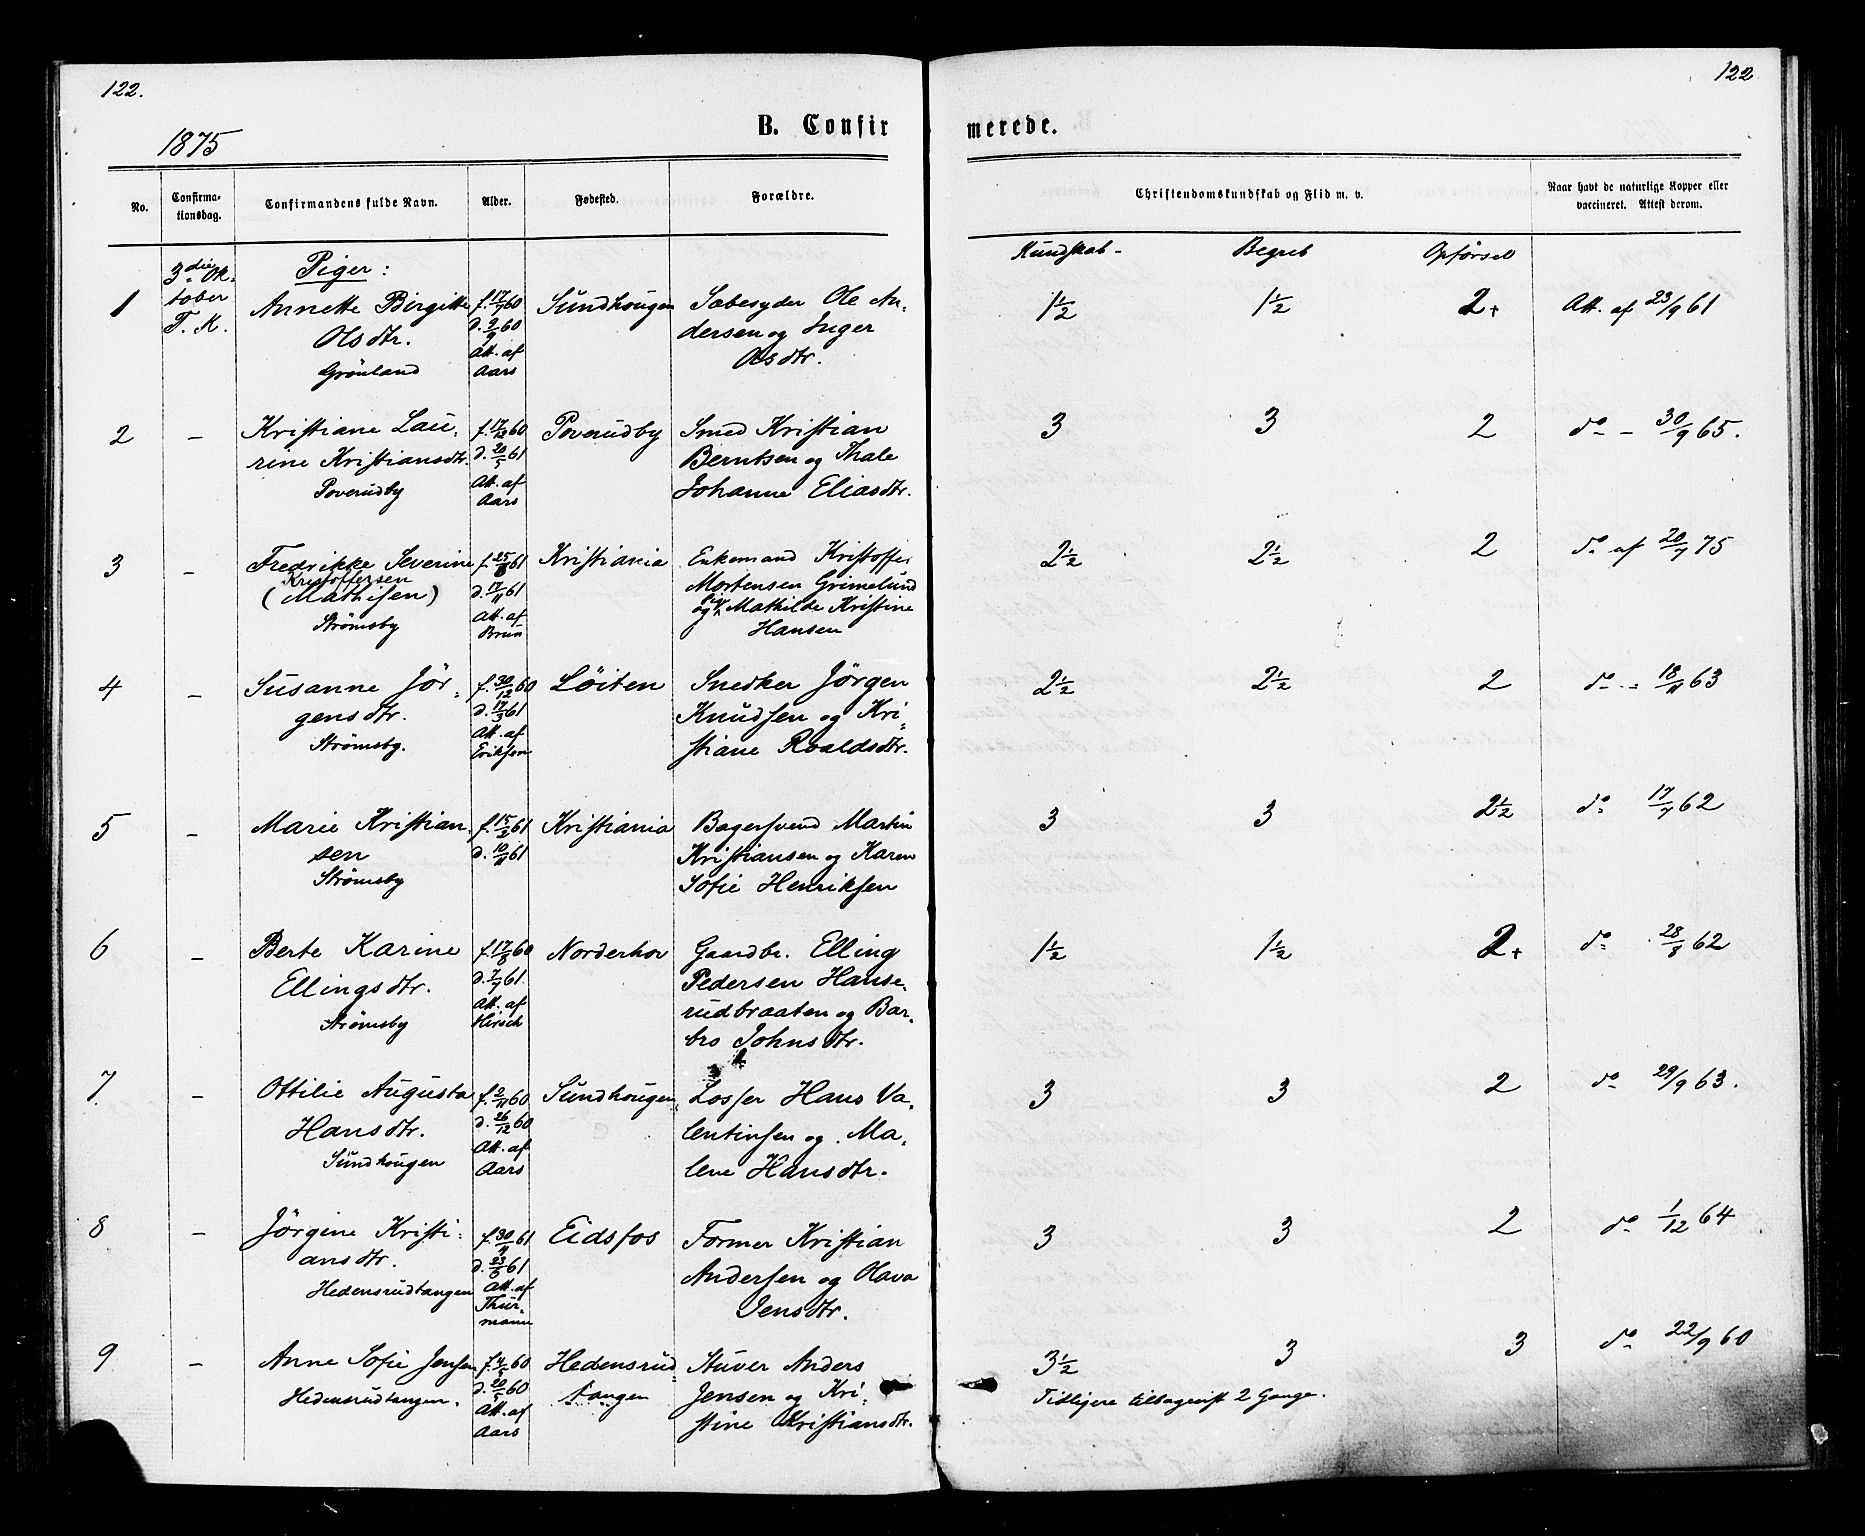 122.
122
1875
B. Confir
merede.
No.
Confirma-
tionsdag.
Confirmandens fulde Navn.
Alder.
Fødested.
Forældre.
Christendomskundskab og Flid m. v.
Naar havt de naturlige Kopper eller
vaccineret. Attest derom.
Kundskab- Begreb Opførsel
3die Ok-
tober
T. K.
Piger:
1 Annette Birgitte f. 17/7 60 Sundhougen Sæbesyder Ole An- 1 1/2 1 1/2 2+ Att. af 23/9 61
Olsdtr. d. 9/9 60 dersen og Inger
Grönland Att. af Aars Olsdtr.
2 – Kristiane Lau- f. 17/12 60 Poverudby Smed Kristian 3 3 2 do – 30/9 65.
rine Kristiansdtr. d. 20/5 61 Berntsen og Thale
Poverudby Att. af Aars Johanne Eliasdtr.
3 – Fredrikke Severine f. 25/8 61 Kristiania Enkemand Kristoffer 2 1/2 2 1/2 2 do af 20/7 75
Kristoffersen
(Mathisen) d. 17/11 61 Mortensen Grimelund
Strømsby Att. af Brun og Mathilde Kristine
Hansen
4 – Susanne Jör- f. 30/12 60 Löiten Snedker Jörgen 2 1/2 2 1/2 2 do – 18/11 63
gensdtr. d. 17/3 61 Knudsen og Kri-
Strömsby. Att. af Eriksen stiane Roaldsdtr.
5 – Marie Kristian- f. 15/2 61 Kristiania Bagersvend Martin 3 3 2 1/2 do 17/7 62
sen d. 10/11 61 Kristiansen og Karen
Strömsby Sofie Henriksen
6 – Berte Karine f. 17/8 60 Norderhov Gaardbr. Elling 1 1/2 1 1/2 2+ do 28/8 62
Ellingsdtr. d. 7/7 61 Pedersen Hanse-
Strömsby Att. af Hirsch rudbraaten og Bar-
bro Johnsdtr.
7 – Ottilie Augusta f. 2/11 60 Sundhougen Losser Hans Va- 3 3 2 do 29/9 63.
Hansdtr. d. 26/12 60 lentinsen og Ma-
Sundhougen Att. af Aars lene Hansdtr.
8 – Jørgine Kristi- f. 30/4 61 Eidsfos Former Kristian 3 3 2 do 1/12 64
ansdtr. d. 23/6 61 Andersen og Olava
Hedensrudtangen Att. af Thur-
mann Jensdtr.
9 – Anne Sofie Jensen f. 4/5 60 Hedensrud- Stuver Anders 3 1/2 3 3 do 22/9 60
Hedensrudtangen. d. 20/5 60 tangen Jensen og Kri- Tidligere tilbagevist 2 Gange.
Att. af Aars stine Kristiansdtr.